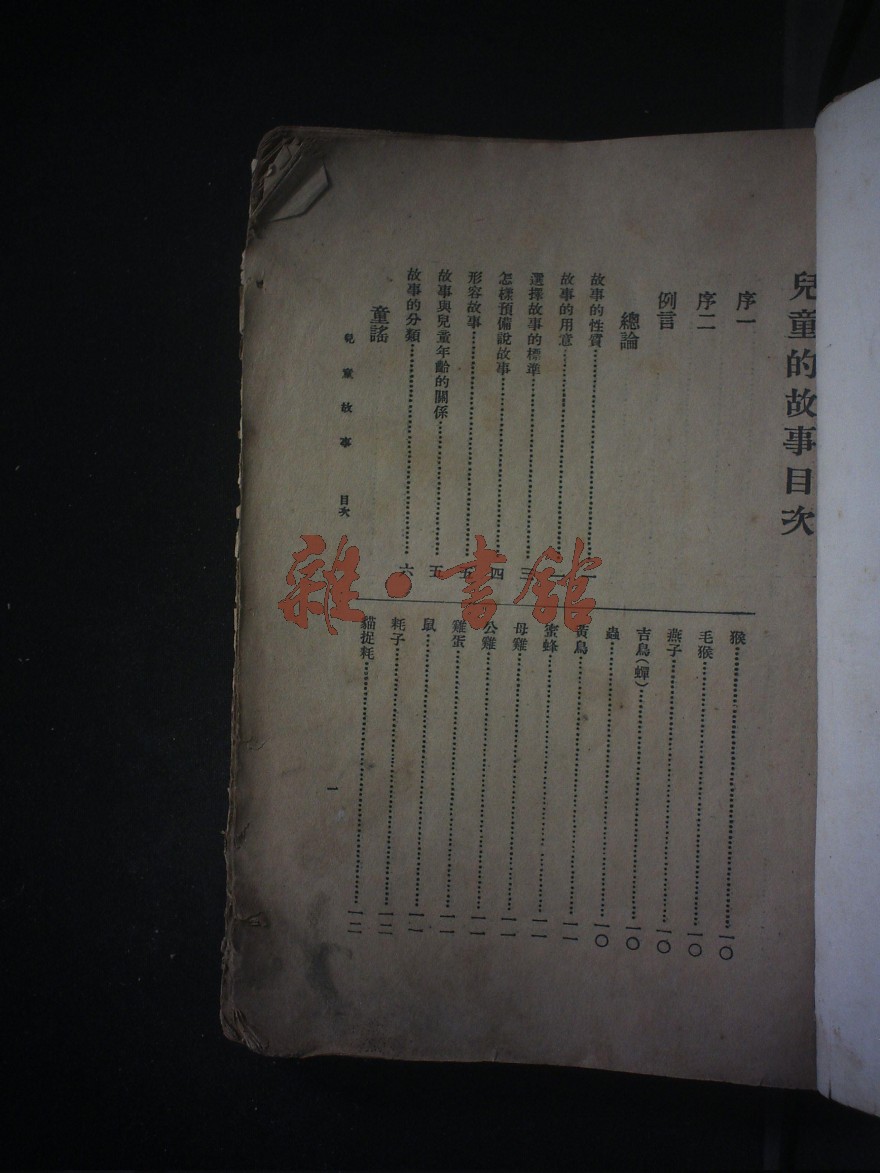 兒童的故事目次
序一
序二
例言
總論
故事的性質……一
故事的用意……
選擇故事的標準……三
怎樣預備說故事……四
形容故事……五
故事與兒童年齡的關係……五
故事的分類……六
童謠
猴……一〇
毛猴……一〇
燕子……一〇
吉鳥（蟬）……一〇
蟲……一〇
黃鳥……一一
蜜蜂……一一
母雞……一一
公雞……一一
雞蛋……一一
鼠……一一
耗子……一二
貓捉耗……一二
兒童故事 目次
一
雜·書館